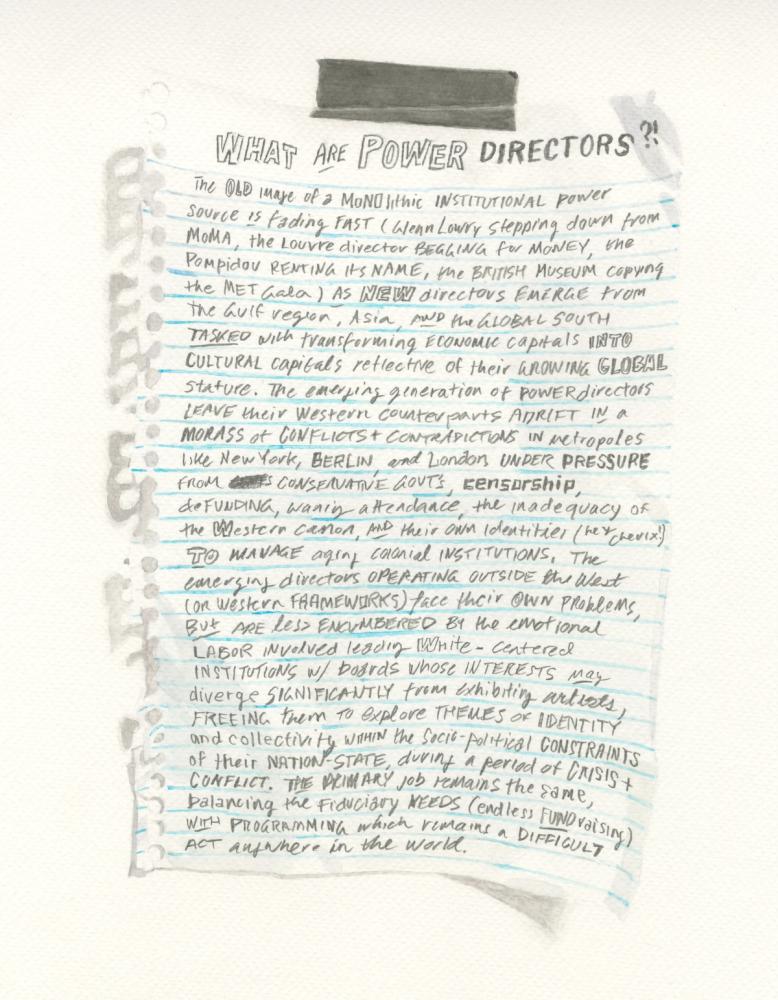 WHAT ARE POWER DIRECTORS?!
The OLD image of a MONOlithic INSTITUTIONAL power
source is fading FAST (Glenn Lowry stepping down from
MoMA, the Louvre director BEGGING for MONEY, the
Pompidou RENTING its NAME, the BRITISH MUSEUM copying
the MET Gala) AS NEW directors EMERGE from
the Gulf region, Asia, AND the GLOBAL SOUTH
TASKED with transforming ECONOMIC capitals INTO
CULTURAL capitals reflective of their GROWING GLOBAL
stature. The emerging generation of POWER directors
LEAVE their Western counterparts ADRIFT IN a
MORASS of CONFLICTS + CONTRADICTIONS IN metropoles
like New York, BERLIN, and London UNDER PRESSURE
FROM CONSERVATIVE GOVT'S, censorship,
deFUNDING, waning attendance, the inadequacy of
the Western canon, AND their OWN identities (hey cherix!)
TO MANAGE aging colonial INSTITUTIONS. The
emerging directors OPERATING OUTSIDE the West
(or Western FRAMEWORKS) face their OWN Problems,
BUt ARE less ENCUMBERED BY the emotional
LABOR involved leading White-centered
INSTITUTIONS w/ boards whose INTERESTS may
diverge SIGNIFICANTLY from exhibiting artists,
FREEING them TO Explore THEMES of IDENTITY
and collectivity WITHIN the Socio-political CONSTRAINTS
of their NATION-STATE, during a period of CRISIS +
CONFLICT. THE PRIMARY job remains the same,
balancing the Fiduciary NEEDS (endless FUNDraising)
WITH PROGRAMMING which remains a DIFFICULT
ACT anywhere in the world.